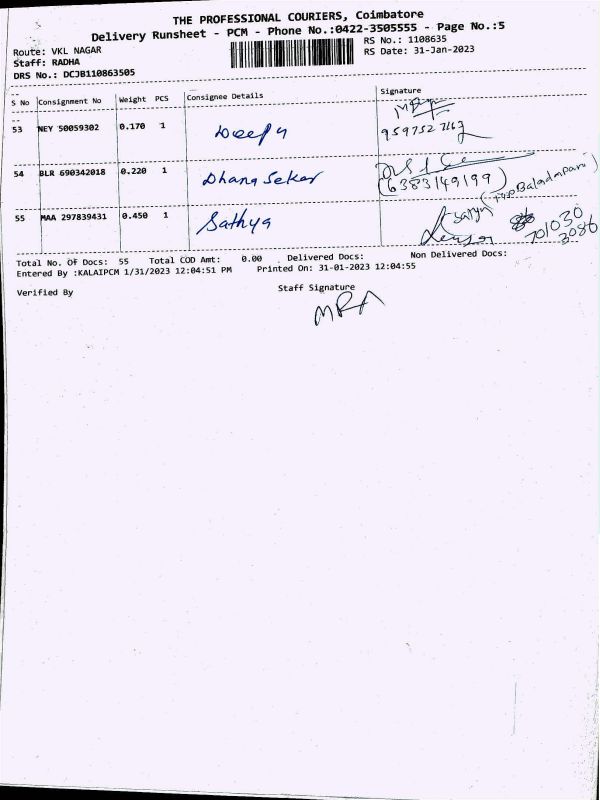 THE PROFESSIONAL COURIERS, Coimbatore
Delivery Runsheet - PCM - Phone No.:0422-3505555 - Page No.:5
Route: VKL NAGAR
RS No.: 1108635
Staff: RADHA
RS Date: 31-Jan-2023
DRS No.: DCJB110863505
S No Consignment No Weight PCS Consignee Details Signature
53 NEY 50059302 0.170 1 Deepa
54 BLR 690342018 0.220 1 Dhana Sekar
(6383149199)
55 MAA 297839431 0.450 1 Sathya
701030
3086
Total No. Of Docs: 55 Total COD Amt: 0.00 Delivered Docs: Non Delivered Docs:
Entered By :KALAIPCM 1/31/2023 12:04:51 PM Printed On: 31-01-2023 12:04:55
Verified By Staff Signature
MRA